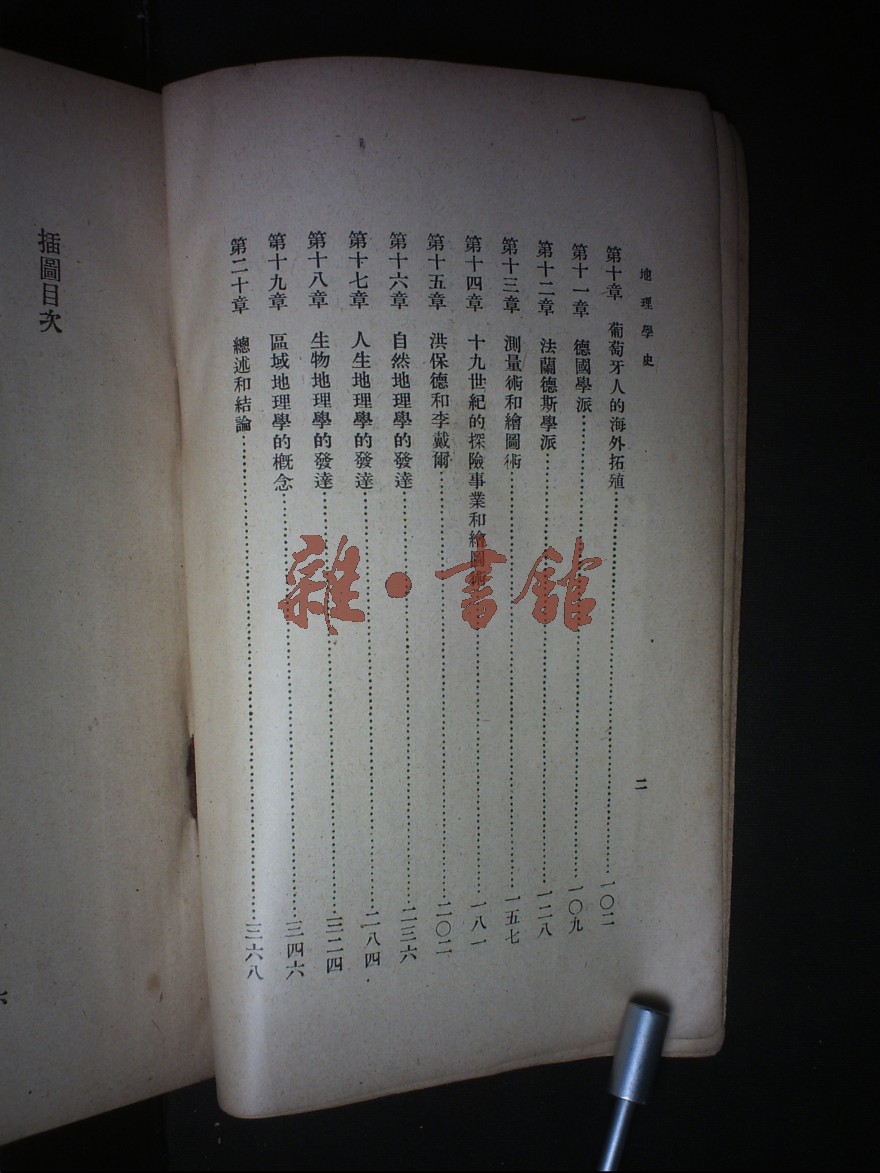 地理學史
二
第十章 葡萄牙人的海外拓殖……一〇二
第十一章 德國學派……一〇九
第十二章 法蘭德斯學派……一二八
第十三章 測量術和繪圖術……一五七
第十四章 十九世紀的探險事業和繪圖術……一八一
第十五章 洪保德和李戴爾……二〇二
第十六章 自然地理學的發達……二三六
第十七章 人生地理學的發達……二八四
第十八章 生物地理學的發達……三二四
第十九章 區域地理學的概念……三四六
第二十章 總述和結論……三六八
插圖目次
雜·書館